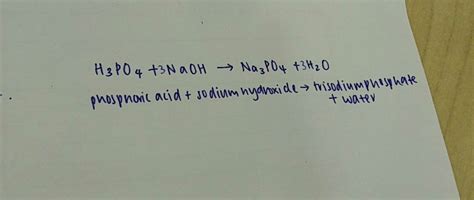 H₃PO₄ +3NaOH → Na₃PO₄ +3H₂O
phosphoric acid + sodium hydroxide → trisodium phosphate
+ water